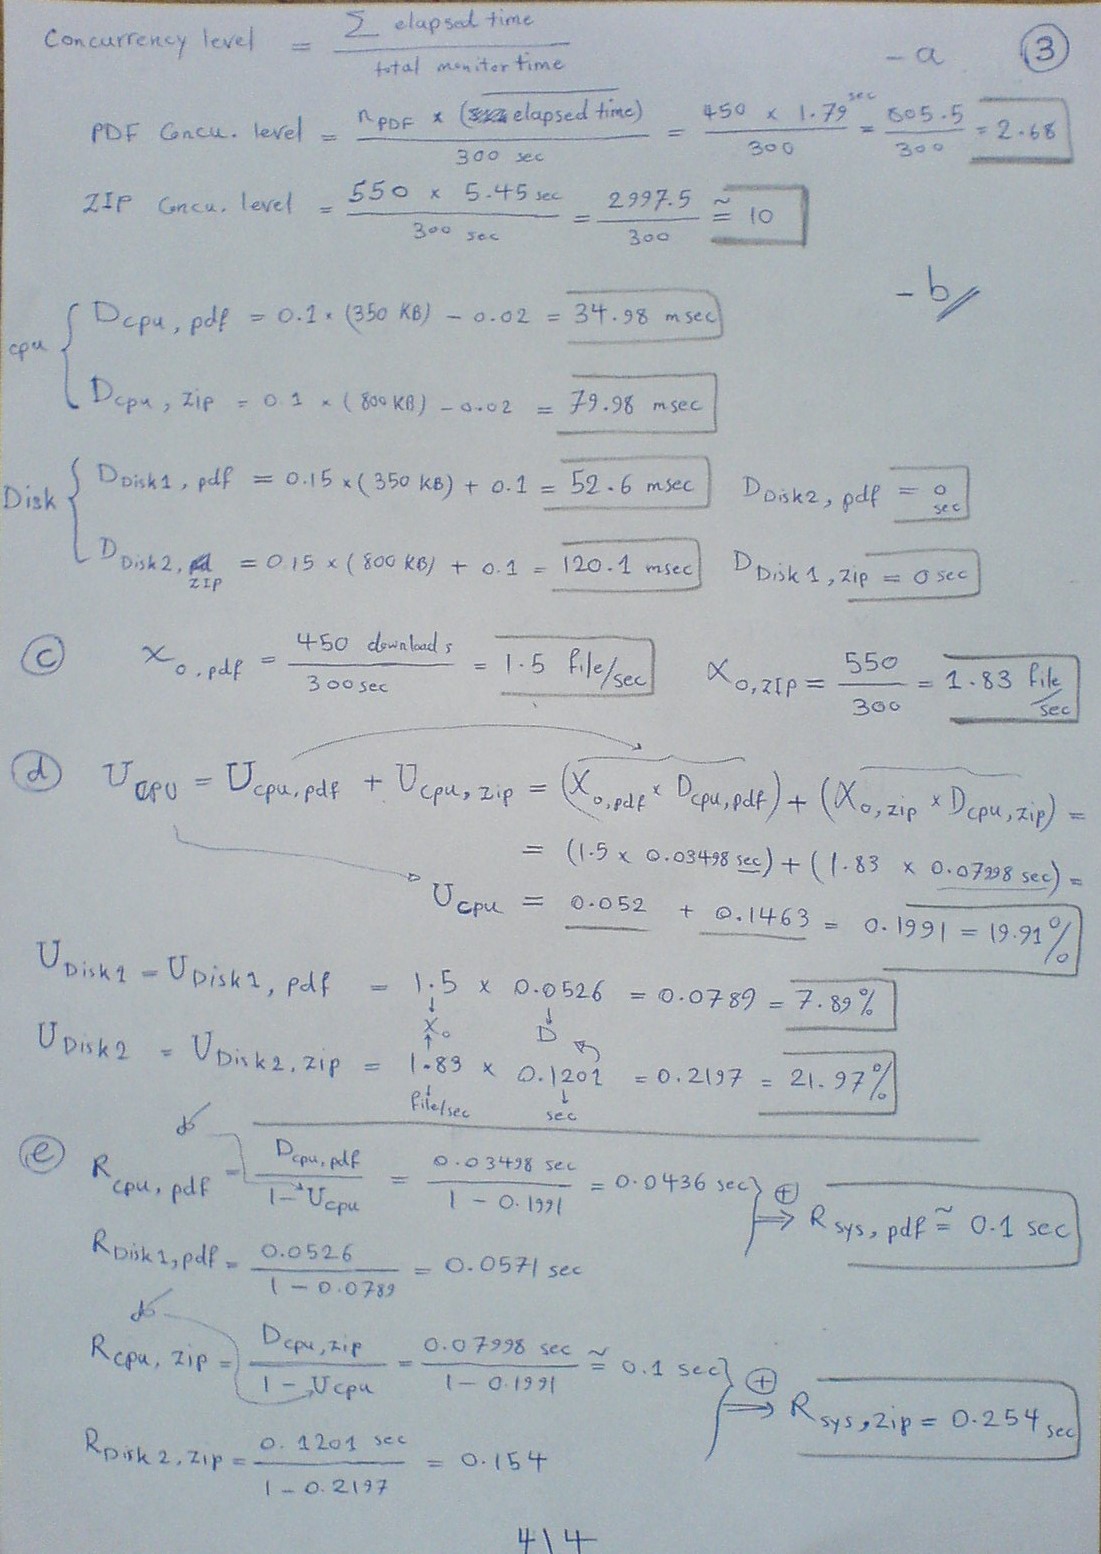 Concurrency level = Σ elapsed time / total monitor time
- a ③
PDF Concu. level = n PDF × (elapsed time) / 300 sec = 450 × 1.79 sec / 300 = 805.5 / 300 = 2.68
ZIP Concu. level = 550 × 5.45 sec / 300 sec = 2997.5 / 300 ≅ 10
- b //
cpu { Dcpu, pdf = 0.1 × (350 KB) - 0.02 = 34.98 msec
Dcpu, zip = 0.1 × (800 KB) - 0.02 = 79.98 msec
Disk { DDisk1, pdf = 0.15 × (350 KB) + 0.1 = 52.6 msec DDisk2, pdf = 0 sec
DDisk2, ZIP = 0.15 × (800 KB) + 0.1 = 120.1 msec DDisk1, zip = 0 sec
ⓒ Xo,pdf = 450 downloads / 300 sec = 1.5 file/sec Xo,ZIP = 550 / 300 = 1.83 file/sec
ⓓ UCPU = Ucpu,pdf + Ucpu, zip = (Xo,pdf × Dcpu,pdf) + (Xo,zip × Dcpu,zip) =
= (1.5 × 0.03498 sec) + (1.83 × 0.07998 sec) =
Ucpu = 0.052 + 0.1463 = 0.1991 = 19.91%
UDisk1 = UDisk1, pdf = 1.5 × 0.0526 = 0.0789 = 7.89%
↓ Xo ↑ ↓ D
UDisk2 = UDisk2, zip = 1.83 × 0.1201 = 0.2197 = 21.97%
↓ file/sec ↓ sec
ⓔ Rcpu, pdf = Dcpu,pdf / 1 - Ucpu = 0.03498 sec / 1 - 0.1991 = 0.0436 sec } ⊕ ⇒ Rsys, pdf ≅ 0.1 sec
RDisk1,pdf = 0.0526 / 1 - 0.0789 = 0.0571 sec
Rcpu, zip = Dcpu,zip / 1 - Ucpu = 0.07998 sec / 1 - 0.1991 ≅ 0.1 sec } ⊕ ⇒ Rsys,zip = 0.254 sec
RDisk2, zip = 0.1201 sec / 1 - 0.2197 = 0.154
4\4